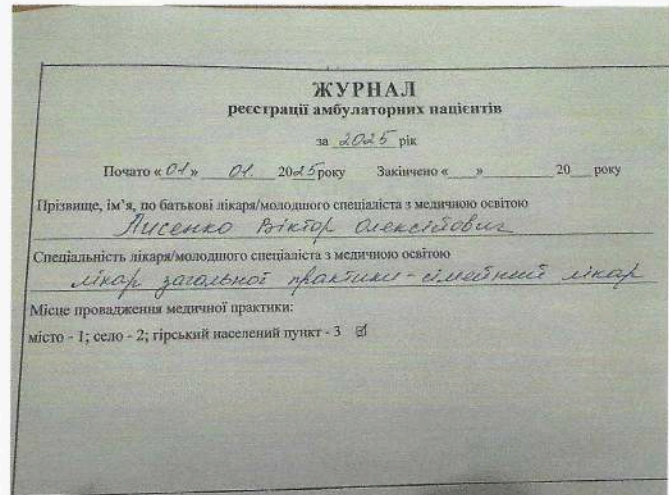 ЖУРНАЛ
реєстрації амбулаторних пацієнтів
за 2025 рік
Почато « 01 » 01. 2025 року Закінчено « » 20 року
Прізвище, ім’я, по батькові лікаря/молодшого спеціаліста з медичною освітою
Лисенко Віктор Олексійович
Спеціальність лікаря/молодшого спеціаліста з медичною освітою
лікар загальної практики - сімейний лікар
Місце провадження медичної практики:
місто - 1; село - 2; гірський населений пункт - 3 ☑